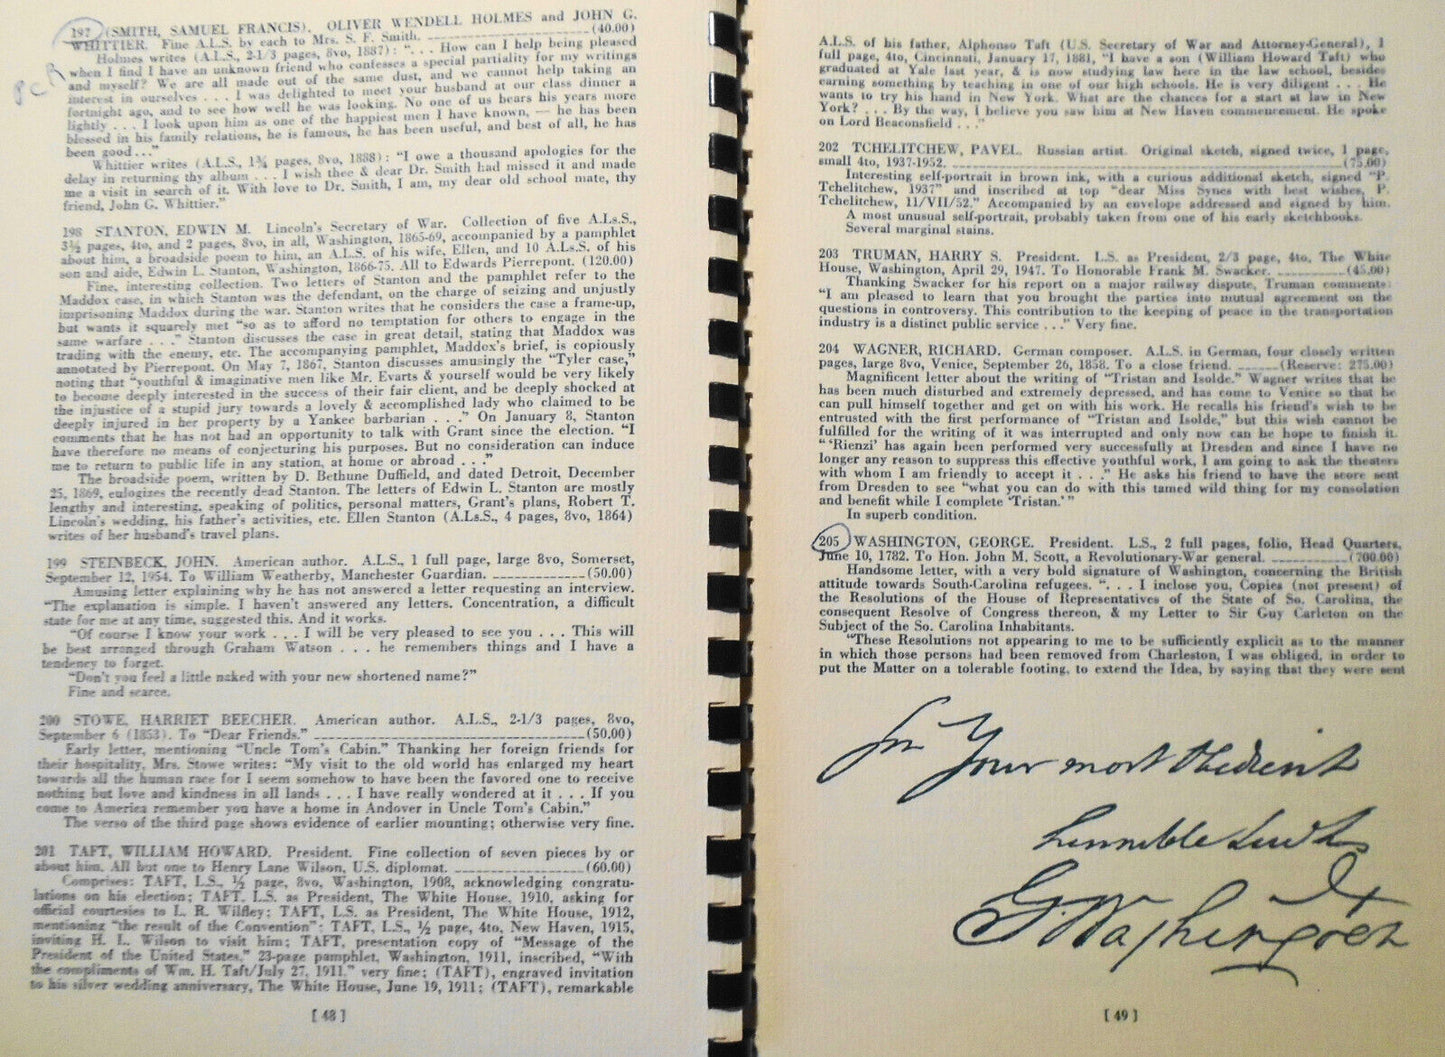 197 (SMITH, SAMUEL FRANCIS). OLIVER WENDELL HOLMES and JOHN G.
WHITTIER. Fine A.L.S. by each to Mrs. S. F. Smith. (40.00)
Holmes writes (A.L.S., 2-1/3 pages, 8vo, 1887): ". . . How can I help being pleased
when I find I have an unknown friend who confesses a special partiality for my writings
and myself? We are all made out of the same dust, and we cannot help taking an
interest in ourselves . . . I was delighted to meet your husband at our class dinner a
fortnight ago, and to see how well he was looking. No one of us bears his years more
lightly . . . I look upon him as one of the happiest men I have known, — he has been
blessed in his family relations, he is famous, he has been useful, and best of all, he has
been good . . ."
Whittier writes (A.L.S., 1¾ pages, 8vo, 1888): "I owe a thousand apologies for the
delay in returning thy album . . . I wish thee & dear Dr. Smith had missed it and made
me a visit in search of it. With love to Dr. Smith, I am, my dear old school mate, thy
friend, John G. Whittier."
198 STANTON, EDWIN M. Lincoln's Secretary of War. Collection of five A.Ls.S.,
3½ pages, 4to, and 2 pages, 8vo, in all, Washington, 1865-69, accompanied by a pamphlet
about him, a broadside poem to him, an A.L.S. of his wife, Ellen, and 10 A.Ls.S. of his
son and aide, Edwin L. Stanton, Washington, 1866-75. All to Edwards Pierrepont. (120.00)
Fine, interesting collection. Two letters of Stanton and the pamphlet refer to the
Maddox case, in which Stanton was the defendant, on the charge of seizing and unjustly
imprisoning Maddox during the war. Stanton writes that he considers the case a frame-up,
but wants it squarely met "so as to afford no temptation for others to engage in the
same warfare . . ." Stanton discusses the case in great detail, stating that Maddox was
trading with the enemy, etc. The accompanying pamphlet, Maddox's brief, is copiously
annotated by Pierrepont. On May 7, 1867, Stanton discusses amusingly the "Tyler case,"
noting that "youthful & imaginative men like Mr. Evarts & yourself would be very likely
to become deeply interested in the success of their fair client, and be deeply shocked at
the injustice of a stupid jury towards a lovely & accomplished lady who claimed to be
deeply injured in her property by a Yankee barbarian . . ." On January 8, Stanton
comments that he has not had an opportunity to talk with Grant since the election. "I
have therefore no means of conjecturing his purposes. But no consideration can induce
me to return to public life in any station, at home or abroad . . ."
The broadside poem, written by D. Bethune Duffield, and dated Detroit, December
25, 1869, eulogizes the recently dead Stanton. The letters of Edwin L. Stanton are mostly
lengthy and interesting, speaking of politics, personal matters, Grant's plans, Robert T.
Lincoln's wedding, his father's activities, etc. Ellen Stanton (A.Ls.S., 4 pages, 8vo, 1864)
writes of her husband's travel plans.
199 STEINBECK, JOHN. American author. A.L.S., 1 full page, large 8vo, Somerset,
September 12, 1954. To William Weatherby, Manchester Guardian. (50.00)
Amusing letter explaining why he has not answered a letter requesting an interview.
"The explanation is simple. I haven't answered any letters. Concentration, a difficult
state for me at any time, suggested this. And it works.
"Of course I know your work . . . I will be very pleased to see you . . . This will
be best arranged through Graham Watson . . . he remembers things and I have a
tendency to forget.
"Don't you feel a little naked with your new shortened name?"
Fine and scarce.
200 STOWE, HARRIET BEECHER. American author. A.L.S., 2-1/3 pages, 8vo,
September 6 (1853). To "Dear Friends." (50.00)
Early letter, mentioning "Uncle Tom's Cabin." Thanking her foreign friends for
their hospitality, Mrs. Stowe writes: "My visit to the old world has enlarged my heart
towards all the human race for I seem somehow to have been the favored one to receive
nothing but love and kindness in all lands . . . I have really wondered at it . . . If you
come to America remember you have a home in Andover in Uncle Tom's Cabin."
The verso of the third page shows evidence of earlier mounting; otherwise very fine.
201 TAFT, WILLIAM HOWARD. President. Fine collection of seven pieces by or
about him. All but one to Henry Lane Wilson, U.S. diplomat. (60.00)
Comprises: TAFT, L.S., ½ page, 8vo, Washington, 1908, acknowledging congratu-
lations on his election; TAFT, L.S. as President, The White House, 1910, asking for
official courtesies to L. R. Wilfley; TAFT, L.S. as President, The White House, 1912,
mentioning "the result of the Convention"; TAFT, L.S., ½ page, 4to, New Haven, 1915,
inviting H. L. Wilson to visit him; TAFT, presentation copy of "Message of the
President of the United States," 23-page pamphlet, Washington, 1911, inscribed, "With
the compliments of Wm. H. Taft/July 27, 1911," very fine; (TAFT), engraved invitation
to his silver wedding anniversary, The White House, June 19, 1911; (TAFT), remarkable
[ 48 ]
A.L.S. of his father, Alphonso Taft (U.S. Secretary of War and Attorney-General), 1
full page, 4to, Cincinnati, January 17, 1881, "I have a son (William Howard Taft) who
graduated at Yale last year, & is now studying law here in the law school, besides
earning something by teaching in one of our high schools. He is very diligent . . . He
wants to try his hand in New York. What are the chances for a start at law in New
York? . . . By the way, I believe you saw him at New Haven commencement. He spoke
on Lord Beaconsfield . . ."
202 TCHELITCHEW, PAVEL. Russian artist. Original sketch, signed twice, 1 page,
small 4to, 1937-1952. (75.00)
Interesting self-portrait in brown ink, with a curious additional sketch, signed "P.
Tchelitchew, 1937" and inscribed at top "dear Miss Synes with best wishes, P.
Tchelitchew, 11/VII/52." Accompanied by an envelope addressed and signed by him.
A most unusual self-portrait, probably taken from one of his early sketchbooks.
Several marginal stains.
203 TRUMAN, HARRY S. President. L.S. as President, 2/3 page, 4to, The White
House, Washington, April 29, 1947. To Honorable Frank M. Swacker. (45.00)
Thanking Swacker for his report on a major railway dispute, Truman comments:
"I am pleased to learn that you brought the parties into mutual agreement on the
questions in controversy. This contribution to the keeping of peace in the transportation
industry is a distinct public service . . ." Very fine.
204 WAGNER, RICHARD. German composer. A.L.S. in German, four closely written
pages, large 8vo, Venice, September 26, 1858. To a close friend. (Reserve: 275.00)
Magnificent letter about the writing of "Tristan and Isolde." Wagner writes that he
has been much disturbed and extremely depressed, and has come to Venice so that he
can pull himself together and get on with his work. He recalls his friend's wish to be
entrusted with the first performance of "Tristan and Isolde," but this wish cannot be
fulfilled for the writing of it was interrupted and only now can he hope to finish it.
"'Rienzi' has again been performed very successfully at Dresden and since I have no
longer any reason to suppress this effective youthful work, I am going to ask the theaters
with whom I am friendly to accept it . . ." He asks his friend to have the score sent
from Dresden to see "what you can do with this tamed wild thing for my consolation
and benefit while I complete 'Tristan.'"
In superb condition.
205 WASHINGTON, GEORGE. President. L.S., 2 full pages, folio, Head Quarters,
June 10, 1782. To Hon. John M. Scott, a Revolutionary-War general. (700.00)
Handsome letter, with a very bold signature of Washington, concerning the British
attitude towards South-Carolina refugees. ". . . I inclose you, Copies (not present) of
the Resolutions of the House of Representatives of the State of So. Carolina, the
consequent Resolve of Congress thereon, & my Letter to Sir Guy Carleton on the
Subject of the So. Carolina Inhabitants.
"These Resolutions not appearing to me to be sufficiently explicit as to the manner
in which those persons had been removed from Charleston, I was obliged, in order to
put the Matter on a tolerable footing, to extend the Idea, by saying that they were sent
Your most Obedient
humble Servt
G:Washington
[ 49 ]